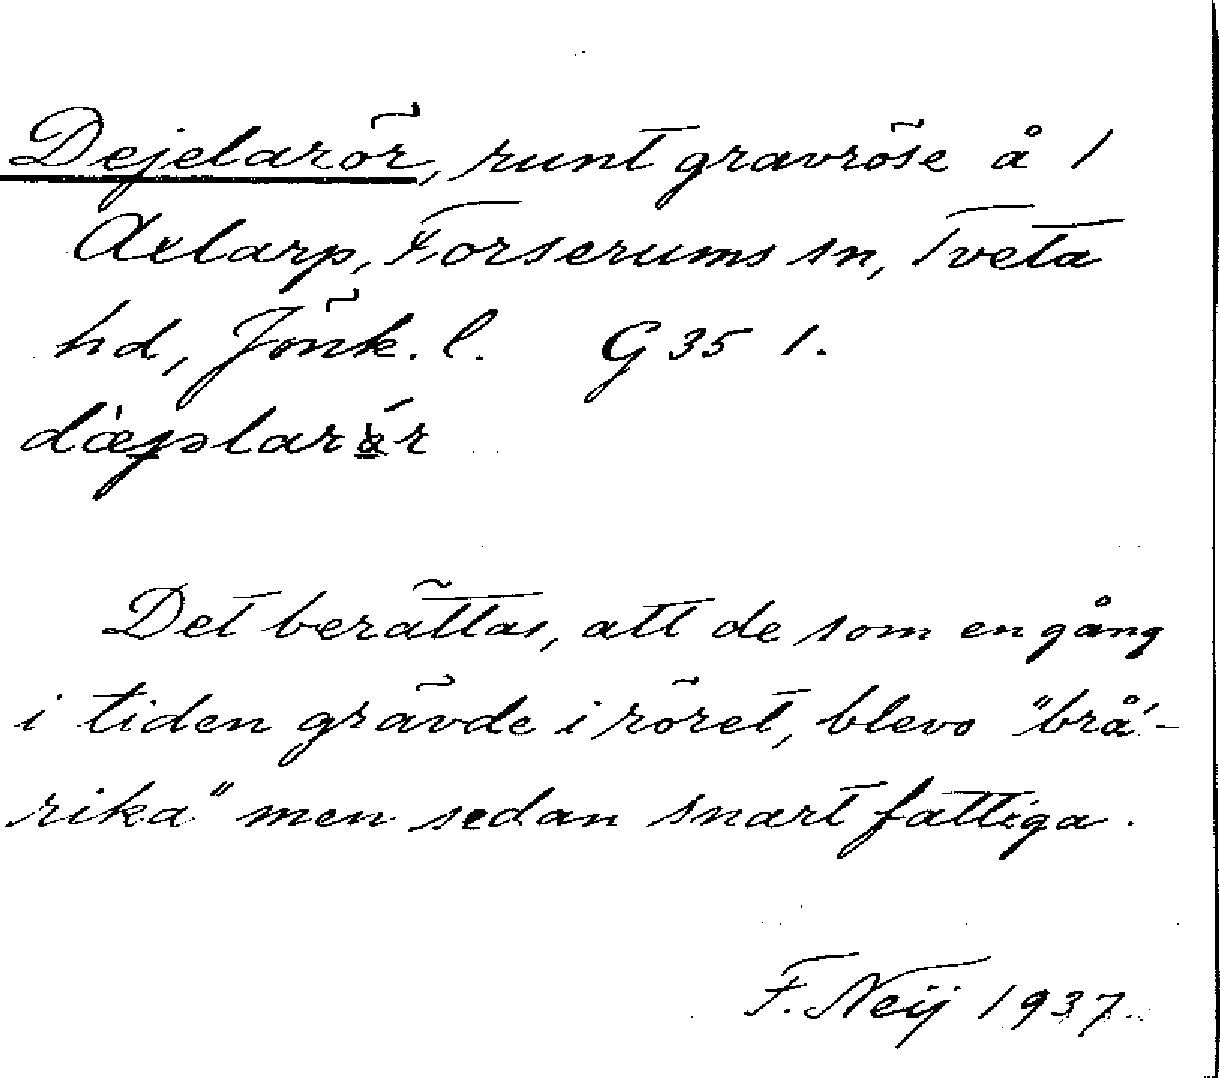 Dejelarör, runt gravröse å 1
Axlarp, Forserums sn, Tveta
hd, Jönk. l. G 35 1.
Det berättas, att de som en gång
i tiden grävde i röret, blevo "brå'-
rika" men sedan snart fattiga.
F. Neij 1937.